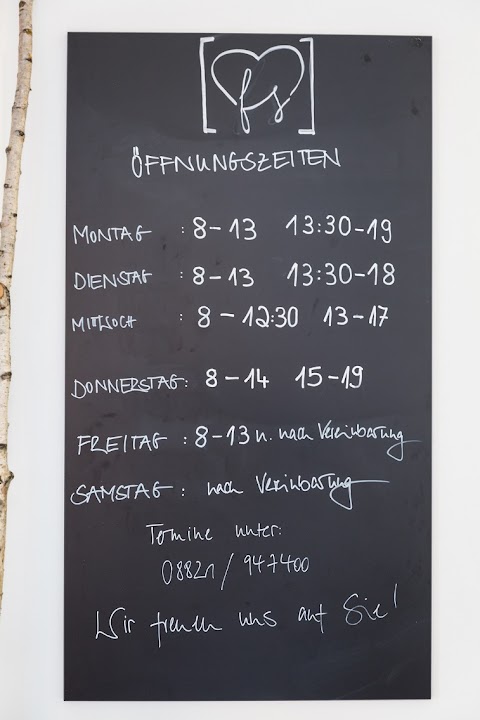 fs
ÖFFNUNGSZEITEN
MONTAG : 8-13 13:30-19
DIENSTAG : 8-13 13:30-18
MITTWOCH : 8-12:30 13-17
DONNERSTAG: 8-14 15-19
FREITAG : 8-13 u. nach Vereinbarung
SAMSTAG : nach Vereinbarung
Termine unter:
08821/947400
Wir freuen uns auf Sie!